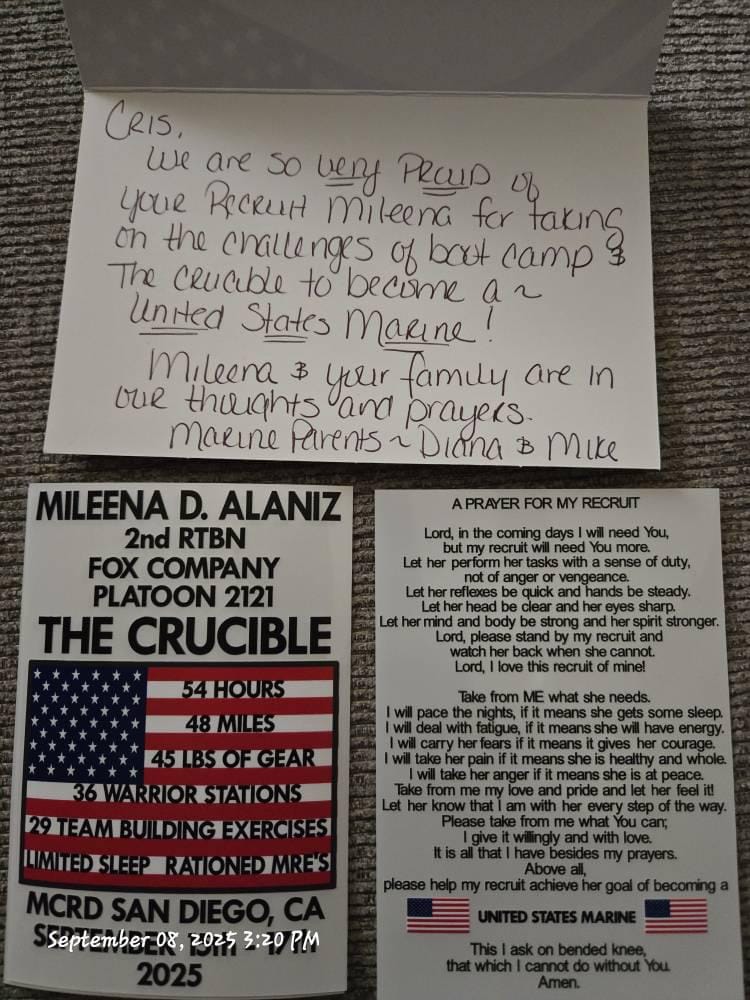 CRIS,
We are so very PROUD of
your Recruit Mileena for taking
on the challenges of boot camp &
The Crucible to become a ~
United States Marine!
Mileena & your family are in
our thoughts and prayers.
Marine Parents ~ Diana & Mike
MILEENA D. ALANIZ
2nd RTBN
FOX COMPANY
PLATOON 2121
THE CRUCIBLE
54 HOURS
48 MILES
45 LBS OF GEAR
36 WARRIOR STATIONS
29 TEAM BUILDING EXERCISES
LIMITED SLEEP RATIONED MRE'S
MCRD SAN DIEGO, CA
SEPTEMBER 15th - 17th
2025
September 08, 2025 3:20 PM
A PRAYER FOR MY RECRUIT
Lord, in the coming days I will need You,
but my recruit will need You more.
Let her perform her tasks with a sense of duty,
not of anger or vengeance.
Let her reflexes be quick and hands be steady.
Let her head be clear and her eyes sharp.
Let her mind and body be strong and her spirit stronger.
Lord, please stand by my recruit and
watch her back when she cannot.
Lord, I love this recruit of mine!
Take from ME what she needs.
I will pace the nights, if it means she gets some sleep.
I will deal with fatigue, if it means she will have energy.
I will carry her fears if it means it gives her courage.
I will take her pain if it means she is healthy and whole.
I will take her anger if it means she is at peace.
Take from me my love and pride and let her feel it!
Let her know that I am with her every step of the way.
Please take from me what You can;
I give it willingly and with love.
It is all that I have besides my prayers.
Above all,
please help my recruit achieve her goal of becoming a
UNITED STATES MARINE
This I ask on bended knee,
that which I cannot do without You.
Amen.